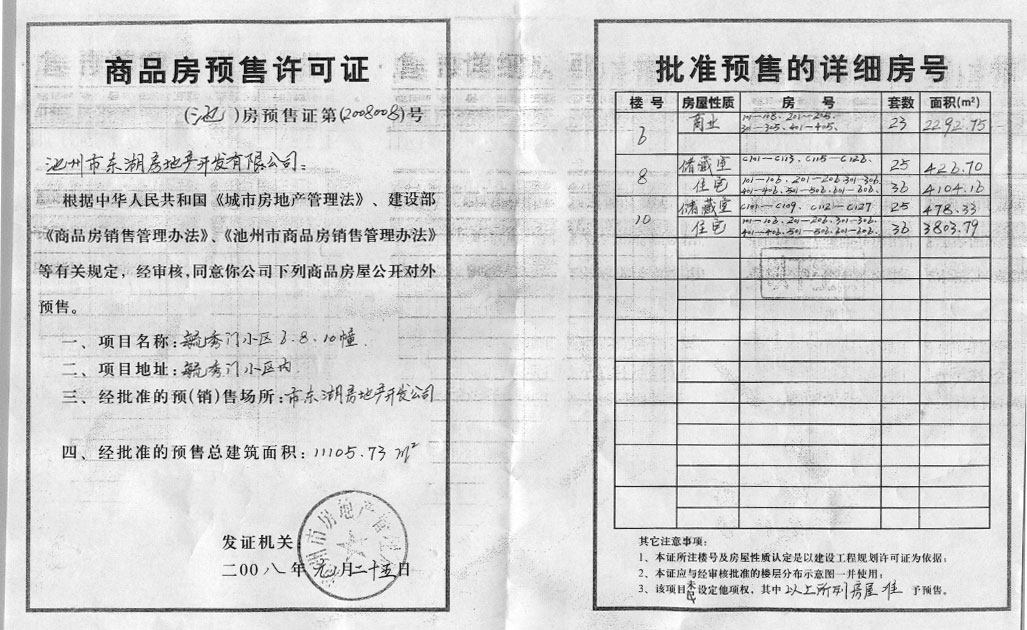 商品房预售许可证
(池)房预售证第(2008008)号
池州市东湖房地产开发有限公司:
根据中华人民共和国《城市房地产管理法》、建设部
《商品房销售管理办法》、《池州市商品房销售管理办法》
等有关规定，经审核,同意你公司下列商品房屋公开对外
预售。
一、项目名称:毓秀门小区6.8.10幢.
二、项目地址:毓秀门小区内.
三、经批准的预(销)售场所:市东湖房地产开发公司
四、经批准的预售总建筑面积:11105.73 m²
发证机关
二00八年元月二十五日
批准预售的详细房号
楼号 房屋性质 房号 套数 面积(m²)
6 商业 101-118、201-205、 23 2292.75
301-305、401-405、
8 储藏室 C101-C113、C115-C126、 25 426.70
住宅 101-106、201-206、301-306、 36 4104.16
401-406、501-506、601-606、
10 储藏室 C101-C109、C112-C127 25 478.33
住宅 101-106、201-206、301-306、 36 3803.79
401-406、501-506、601-606、
其它注意事项:
1、本证所注楼号及房屋性质认定是以建设工程规划许可证为依据;
2、本证应与经审核批准的楼层分布示意图一并使用;
3、该项目未设定他项权，其中以上所列房屋准予预售。